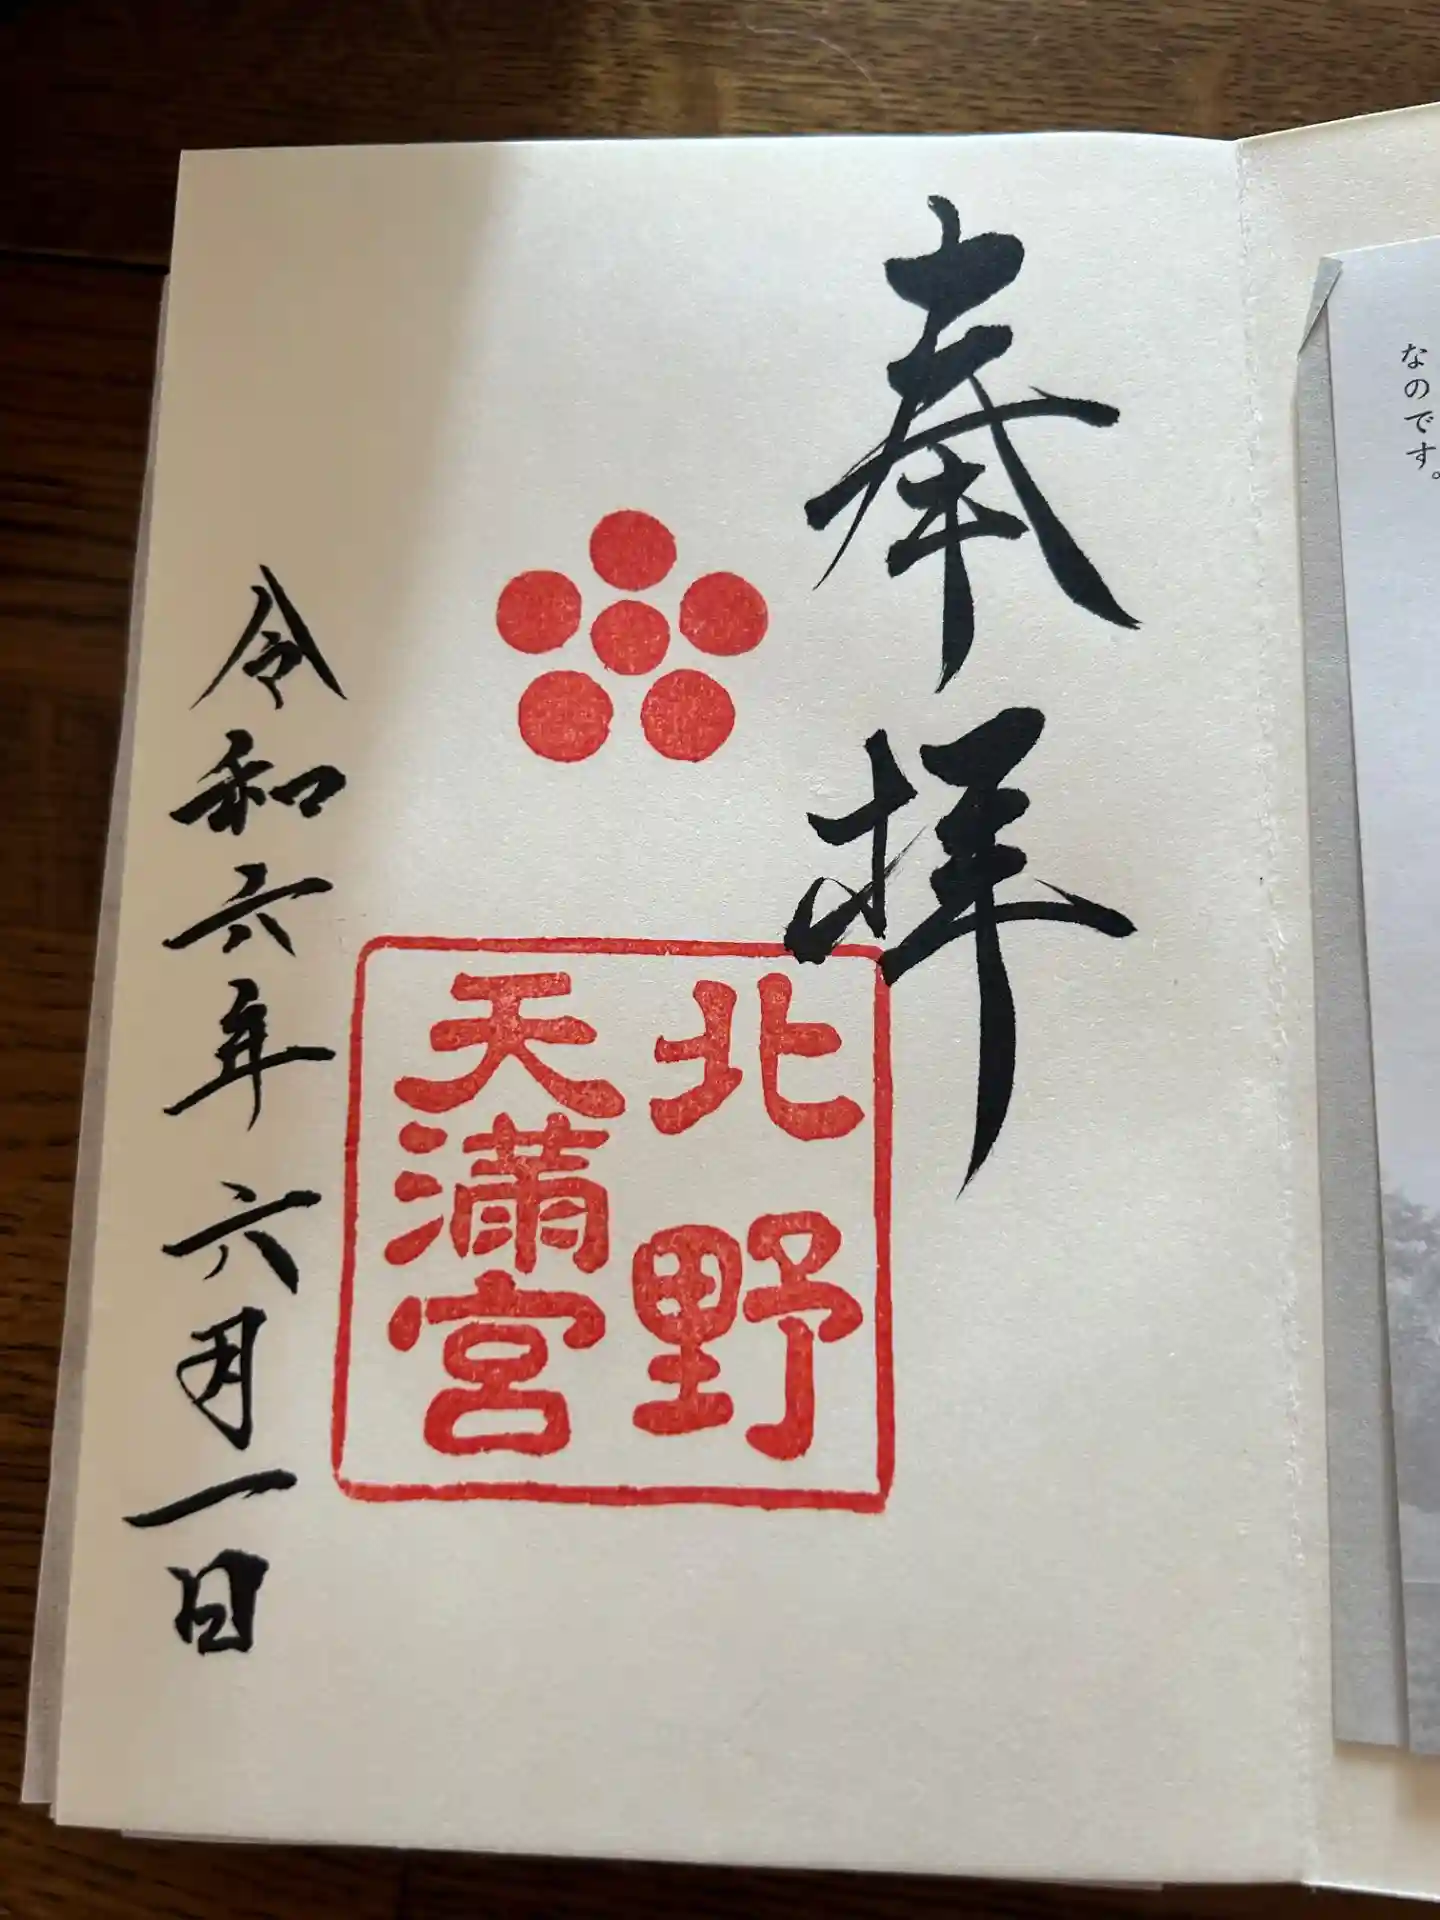 なのです。
奉拝
北野
天満宮
令和六年六月一日